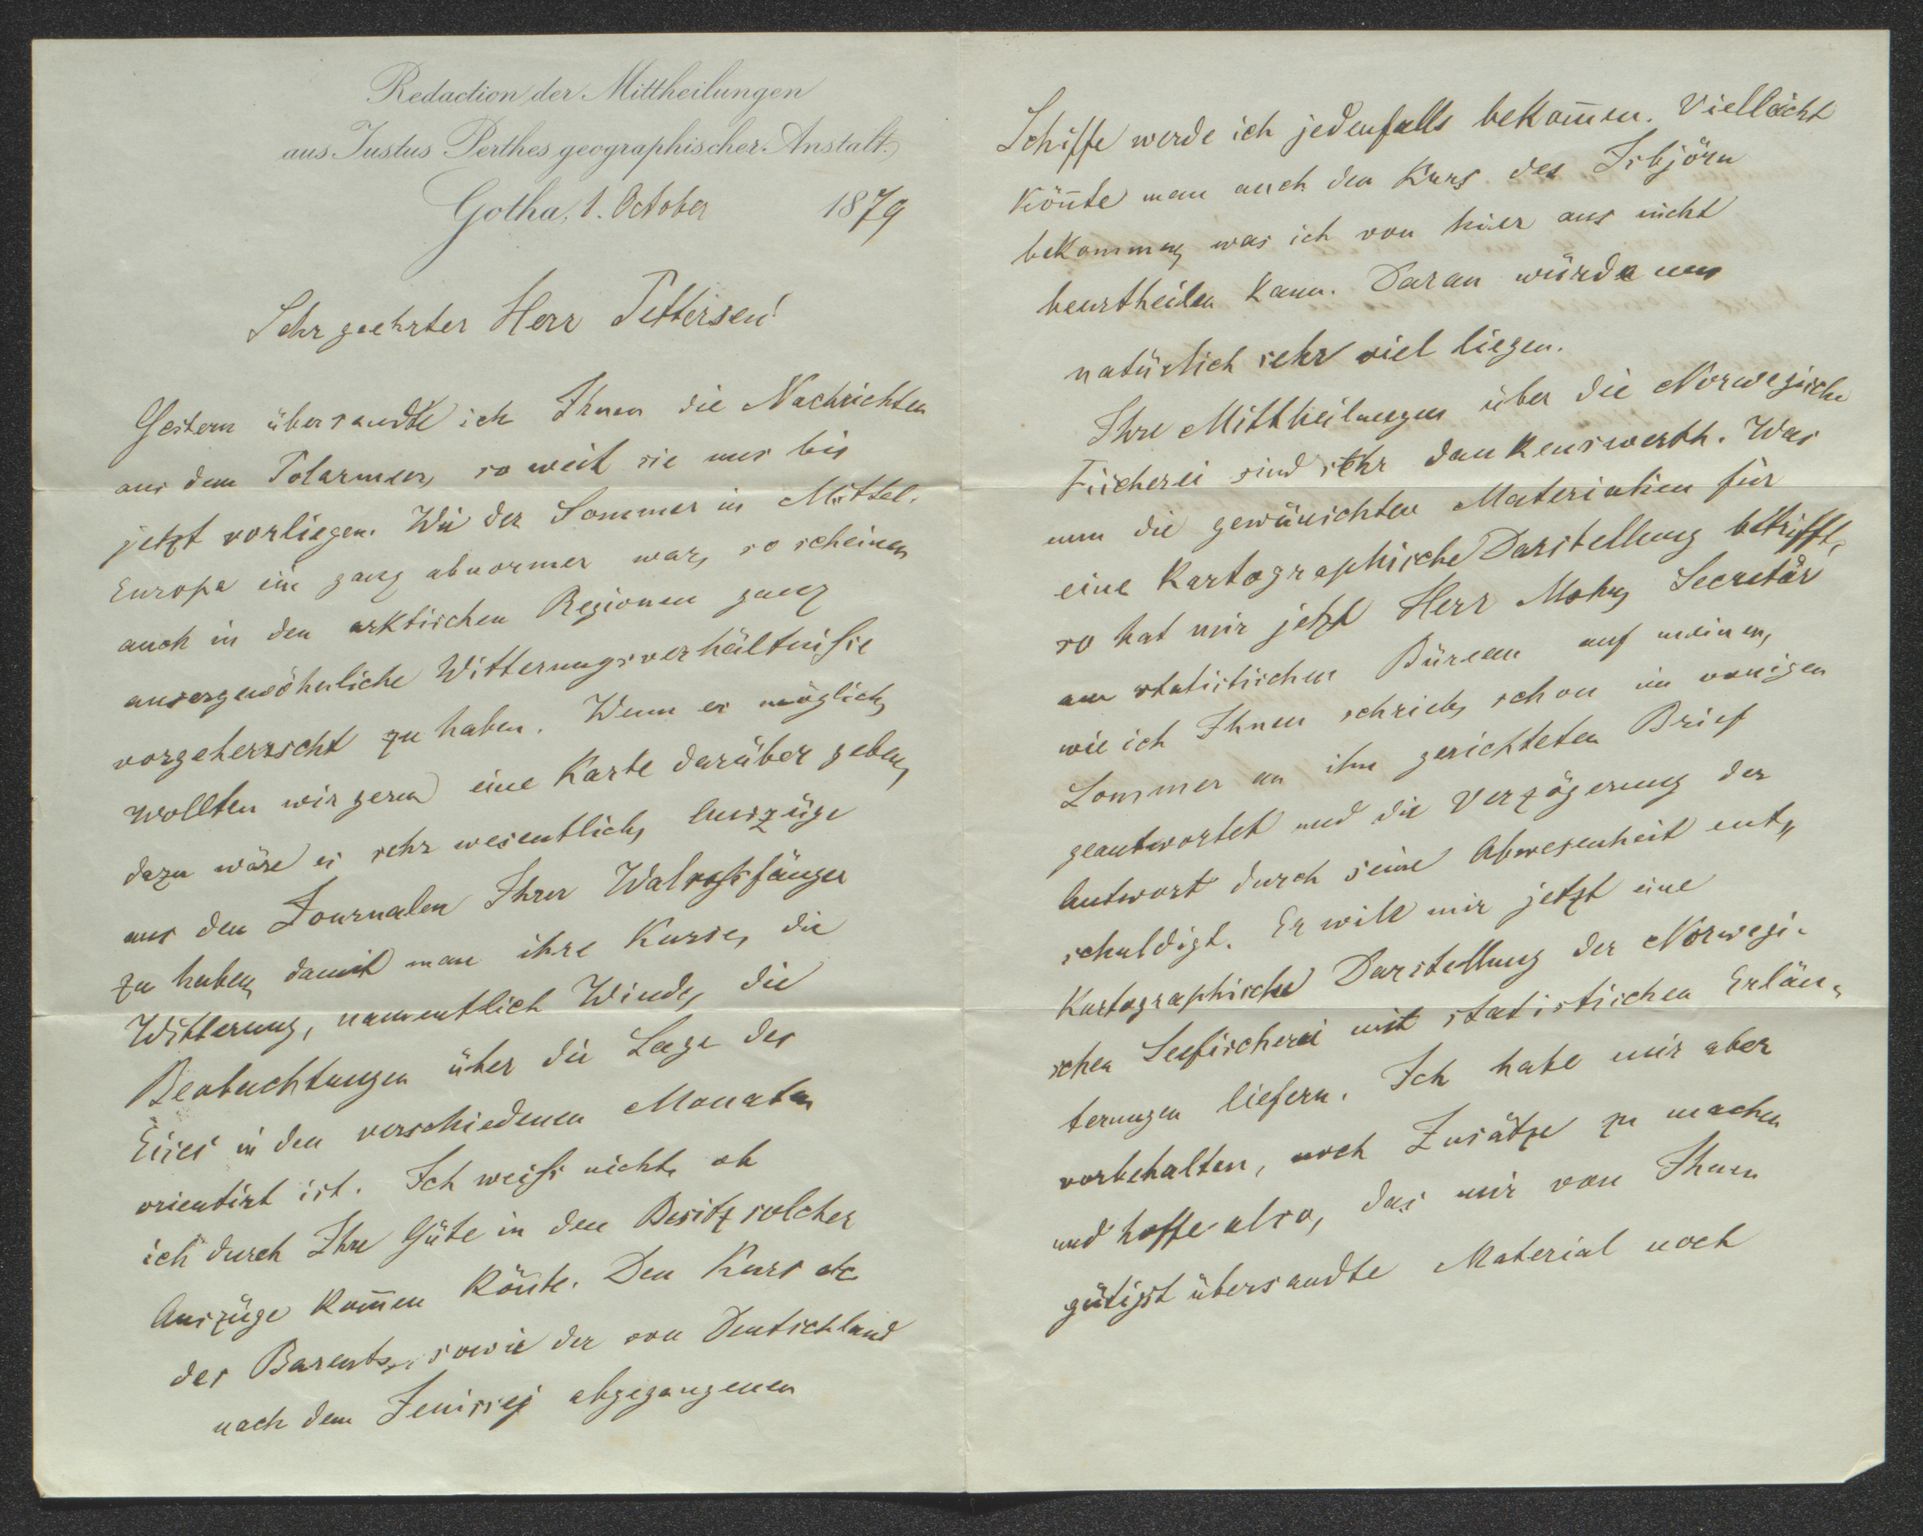 Redaction der Mittheilungen
aus Justus Perthes geographischer Anstalt.
Gotha, 1. October 1879
Sehr geehrter Herr Pettersen!
Gestern übersandte ich Ihnen die Nachrichten
aus dem Polarmeer, so weit sie uns bis
jetzt vorliegen. Wie der Sommer in Mittel-
Europa ein ganz abnormer war, so scheinen
auch in den arktischen Regionen ganz
ausergewöhnliche Witterungsverhältnisse
vorgeherrscht zu haben. Wenn es möglich,
wollten wir gern eine Karte darüber geben,
dazu wäre es sehr wesentlich, Auszüge
aus den Journalen Ihrer Walrossfänger
zu haben, damit man ihre Kurse, die
Witterung, namentlich Winde, die
Beobachtungen über die Lage des
Eises in den verschiedenen Monaten
orientirt ist. Ich weiss nicht, ob
ich durch Ihre Güte in den Besitz solcher
Auszüge kom̄en kön̄te. Den Kurs etc
des Barents, sowie der von Deutschland
nach dem Jenissej abgegangenen
Schiffe werde ich jedenfalls bekom̄en. Vielleicht
kön̄te man auch den Kurs des Isbjörn
bekommen, was ich von hier aus nicht
beurtheilen kann. Daran würde uns
natürlich sehr viel liegen.
Ihre Mittheilungen über die Norwegische
Fischerei sind sehr dankenswerth. Was
nun die gewünschten Materialien für
eine kartographische Darstellung betrifft,
so hat mir jetzt Herr Mohn, Secretär
am statistischen Büreau auf meinen,
wie ich Ihnen schrieb, schon im vorigen
Sommer an ihn gerichteten Brief
geantwortet und die Verzögerung der
Antwort durch seine Abwesenheit ent-
schuldigt. Er will mir jetzt eine
kartographische Darstellung der Norwegi-
schen Seefischerei mit statistischen Erläu-
terungen liefern. Ich habe mir aber
vorbehalten, noch Zusätze zu machen
und hoffe also, das mir von Ihnen
gütigst übersandte Material noch